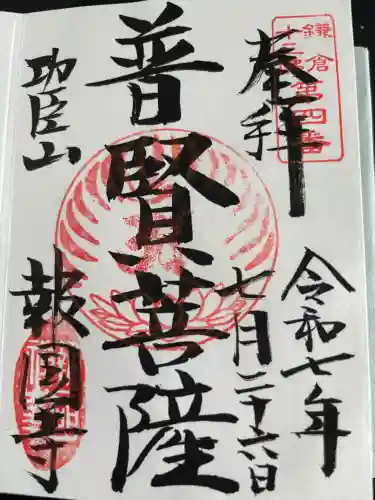 鎌倉
十三佛 第四番
奉拝
令和七年
七月二十六日
普賢菩薩
功臣山
報国寺